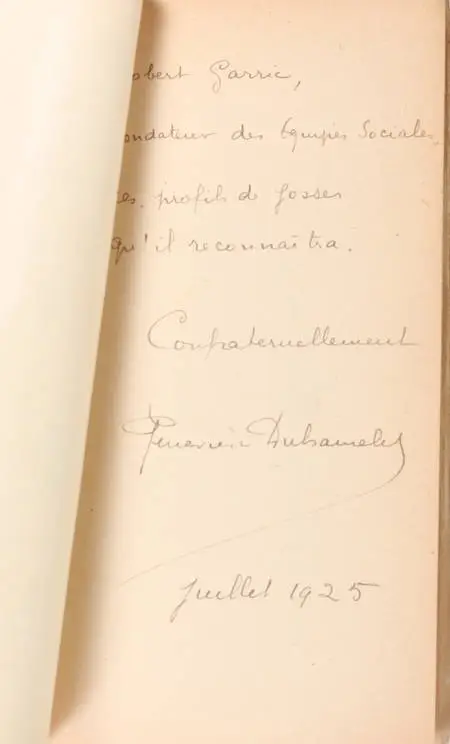 obert Garric,
ondateur des Equipes Sociales,
es profils de gosses
qu'il reconnaîtra.
Confraternellement
Geneviève Duhamelet
Juillet 1925